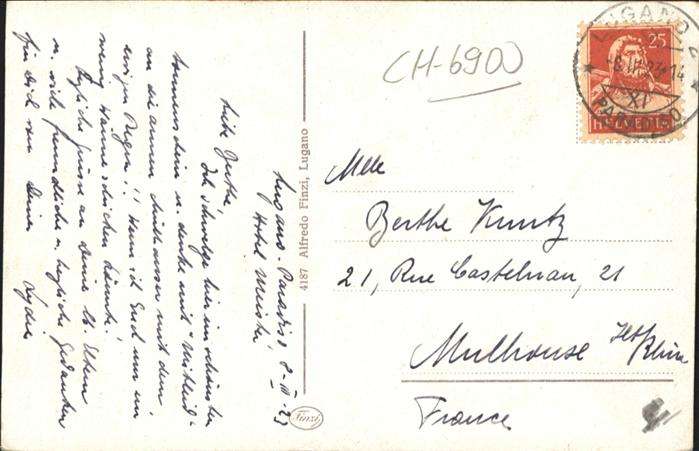 Lugano-Paradiso 8-III-23
Hotel Meister
Liebe Berthe,
Ich schwelge hier im schönsten
Sonnenschein u. denke mit "Mitleid"
an die armen Mülhauser mit dem
ewigen Regen!! Wenn ich Euch nur ein
wenig Wärme schicken könnte!
Herzliche Grüsse an Deine lb. Eltern
u. viele freundliche u. herzliche Gedanken
für Dich von Deiner
Lydia
4187 Alfredo Finzi, Lugano
Finzi
CH-6900
LUGANO 2
25
XV
PARADISO
HELVETIA
Mlle
Berthe Kuntz
21, Rue Castelnau, 21
Mulhouse
Ht Rhin
France